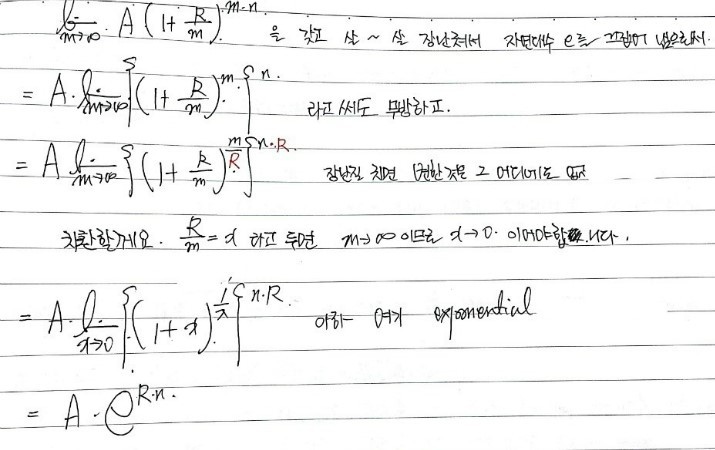 lim m→∞ A(1+R/m)^m·n 을 갖고 살~살 장난쳐서 자연대수 e를 끄집어 냄으로써.
= A·lim m→∞ {(1+R/m)^m}^n. 라고 써도 무방하고.
= A lim m→∞ {(1+R/m)^m/R}^n·R 장난질 치면 변한것은 그 어디에도 없지
치환할게요. R/m = x 라고 두면 m→∞ 이므로 x→0. 이어야합니다.
= A·lim x→0 {(1+x)^1/x}^n·R 아하~ 여기 exponential
= A·e^R·n.